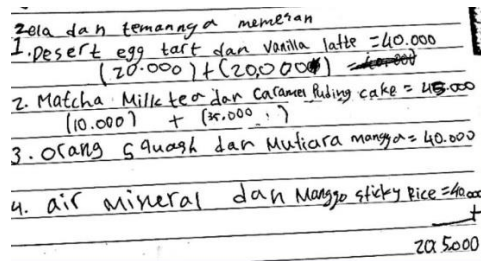 Zela dan temannya memesan
1. Desert egg tart dan vanilla latte = 40.000
(20.000) + (20,000) =
2. Matcha Milk tea dan caramel Puding cake = 45.000
(10.000) + (35.000)
3. Orang Squash dan Mutiara mangga = 40.000
4. air mineral dan Manggo sticky Rice = 40.000
+
205.000